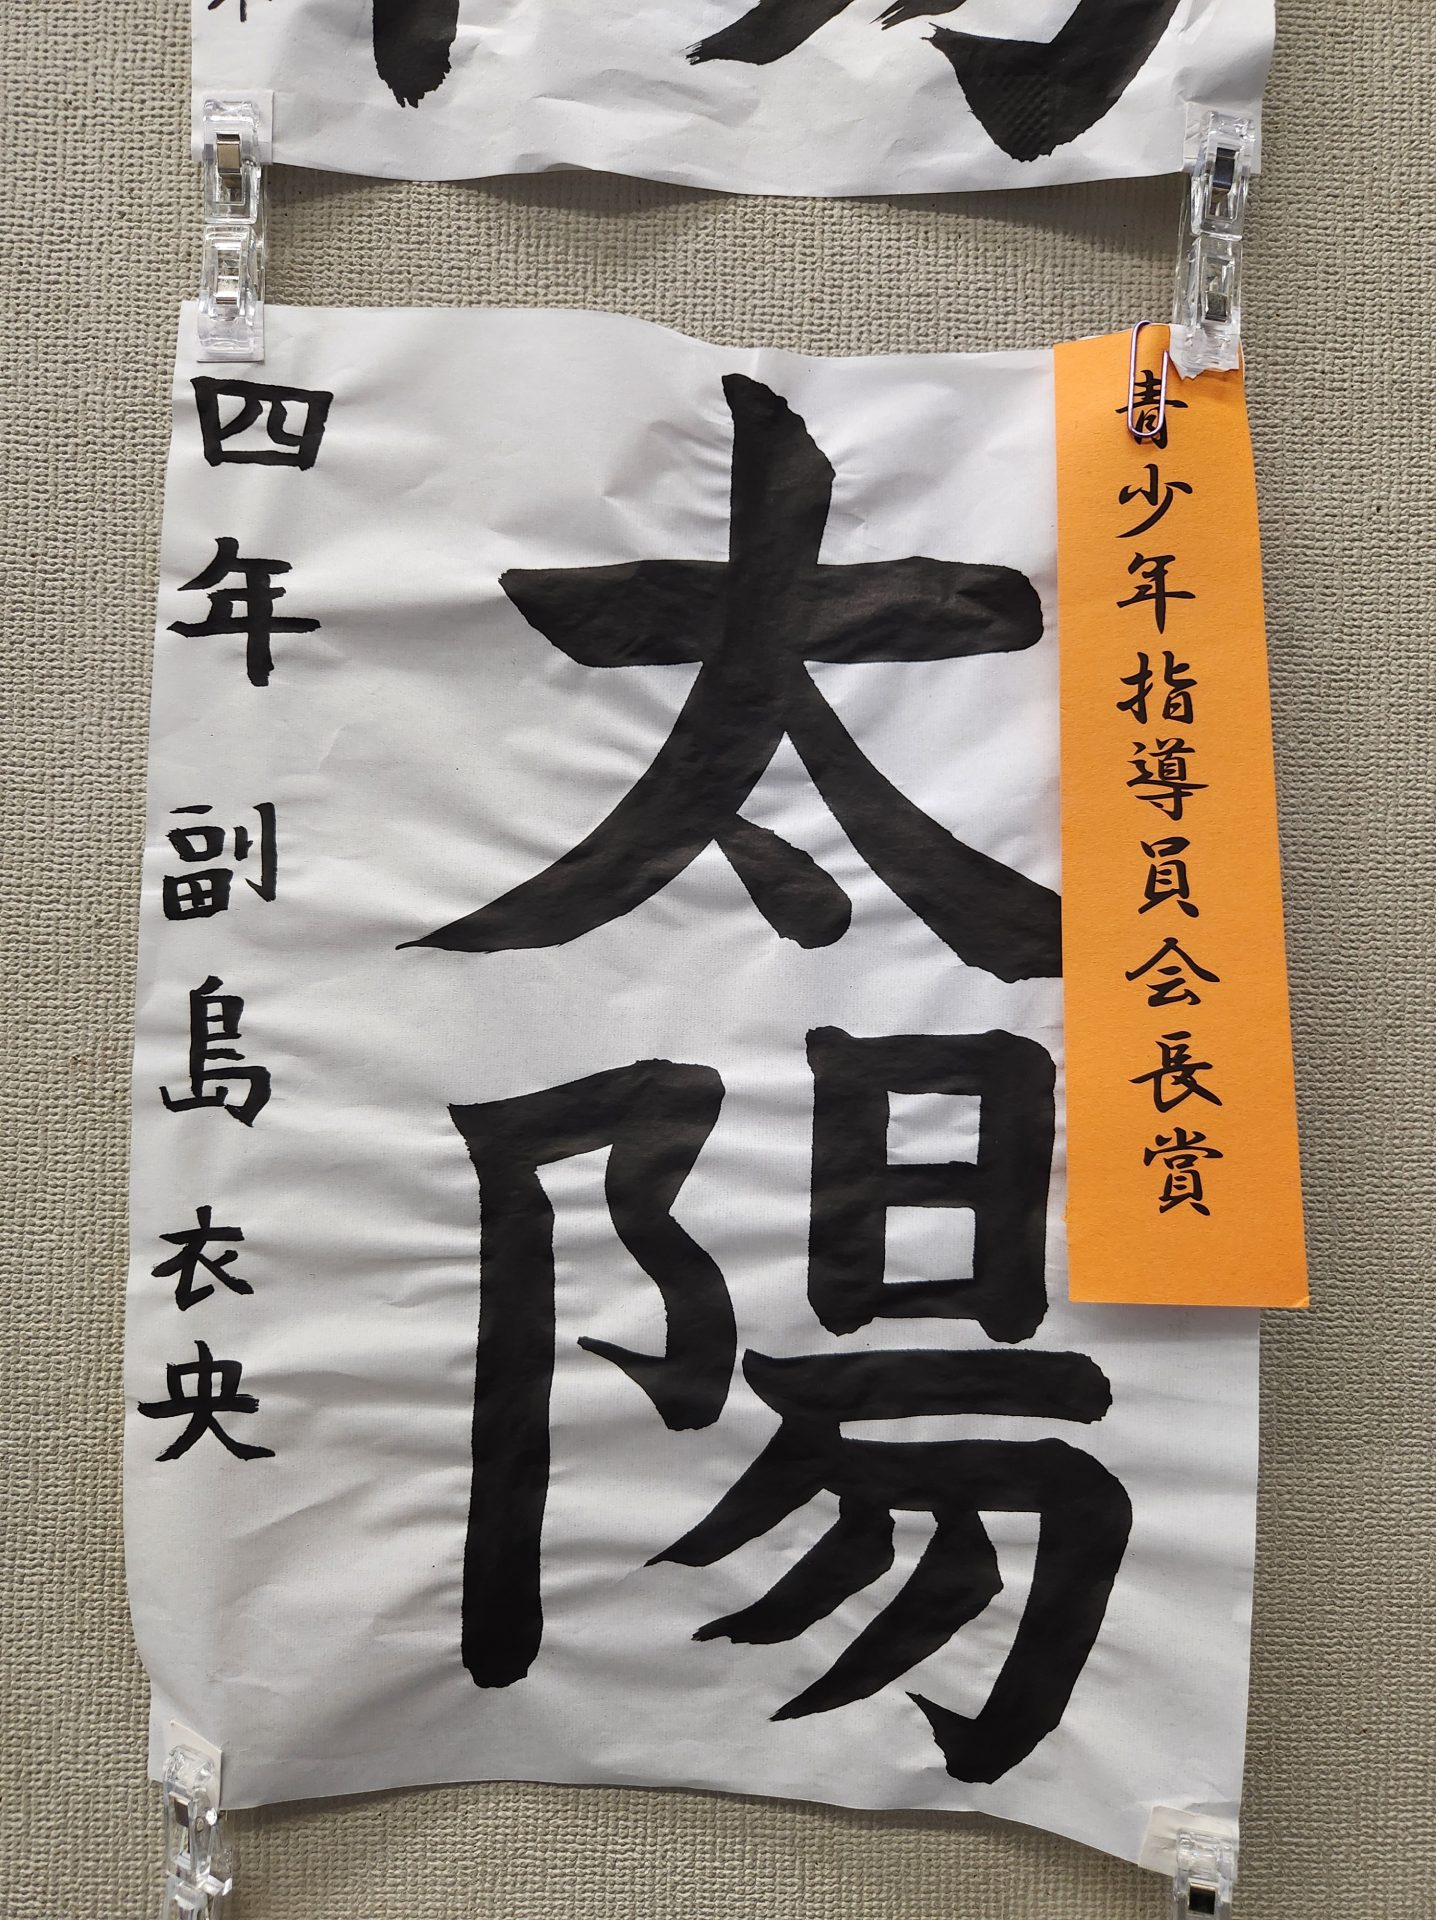 青少年指導員会長賞
太陽
四年 副島 衣央